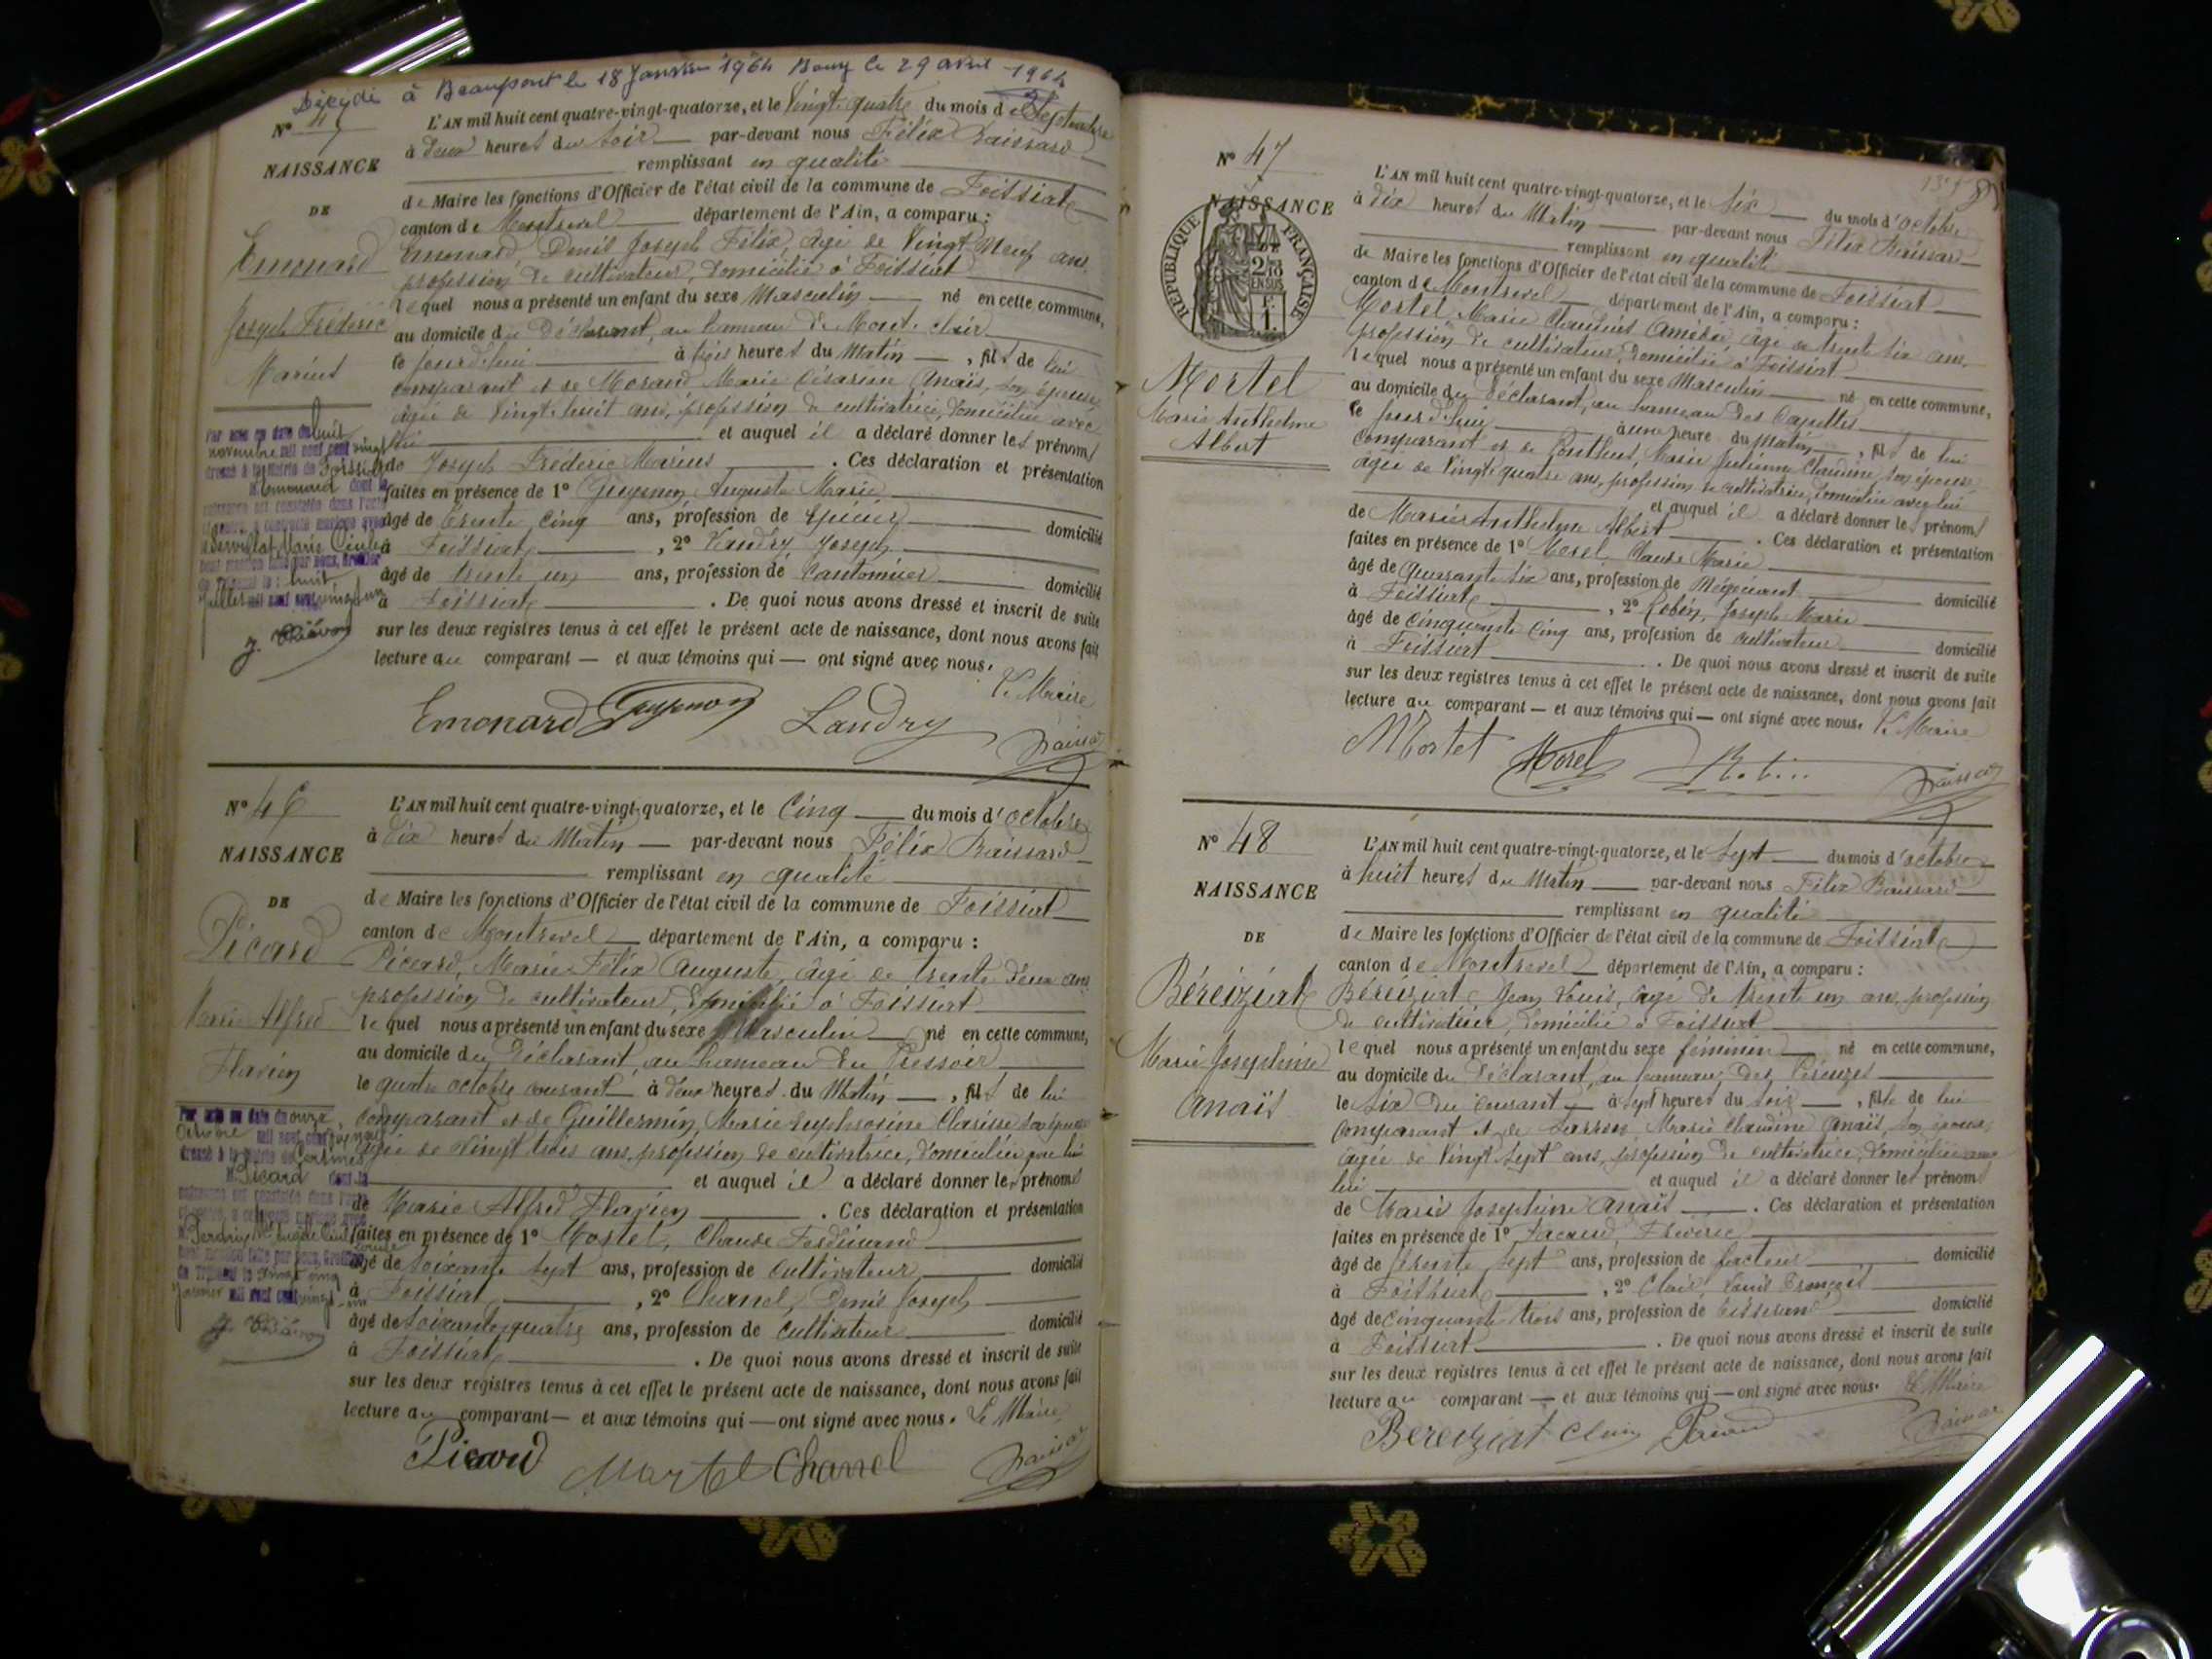 Décédé à Beaupont le 18 Janvier 1964 Bourg le 29 avril 1964
N°
NAISSANCE
DE
Emonard
Joseph Fréderic
Marius
L'AN mil huit cent quatre-vingt-quatorze, et le Vingt quatre du mois de Septembre
à deux heures du soir par-devant nous Félix
remplissant en qualité
de Maire les fonctions d'Officier de l'état civil de la commune de Foissiat
canton de Montrevel département de l'Ain, a comparu :
Emonard, Denis Joseph Félix, âgé de Vingt Neuf ans
profession de cultivateur, domicilié à Foissiat
lequel nous a présenté un enfant du sexe Masculin né en cette commune,
au domicile du Déclarant, au hameau de
ce jourd'hui à trois heures du Matin, fils de lui
comparant et de Morand Marie Césarine Anaïs, son épouse
âgée de Vingt huit ans, profession de cultivatrice, domiciliée avec
lui et auquel il a déclaré donner les prénoms
de Joseph Fréderic Marius . Ces déclaration et présentation
faites en présence de 1° Guyenon, Auguste Marie
âgé de trente cinq ans, profession de Epicier domicilié
à Foissiat, 2° Landry Joseph
âgé de trente un ans, profession de Cantonnier domicilié
à Foissiat . De quoi nous avons dressé et inscrit de suite
sur les deux registres tenus à cet effet le présent acte de naissance, dont nous avons fait
lecture au comparant — et aux témoins qui — ont signé avec nous. Le Maire
Emonard Guyenon Landry
N° 46
NAISSANCE
DE
Picard
Marie Alfred
Flavien
L'AN mil huit cent quatre-vingt-quatorze, et le Cinq du mois d'octobre
à dix heures du Matin par-devant nous Félix
remplissant en qualité
de Maire les fonctions d'Officier de l'état civil de la commune de Foissiat
canton de Montrevel département de l'Ain, a comparu :
Picard, Marie Félix Auguste, âgé de trente deux ans
profession de cultivateur, domicilié à Foissiat
lequel nous a présenté un enfant du sexe Masculin né en cette commune,
au domicile du Déclarant, au hameau du Pressoir
le quatre octobre courant à deux heures du Matin, fils de lui
comparant et de Guillermin, Marie Euphrosine Clarisse son épouse
âgée de Vingt trois ans, profession de cultivatrice, domiciliée avec lui
et auquel il a déclaré donner les prénoms
de Marie Alfred Flavien . Ces déclaration et présentation
faites en présence de 1° Mortel, Claude Ferdinand
âgé de soixante sept ans, profession de Cultivateur domicilié
à Foissiat, 2° Charnel, Denis Joseph
âgé de soixante quatre ans, profession de cultivateur domicilié
à Foissiat . De quoi nous avons dressé et inscrit de suite
sur les deux registres tenus à cet effet le présent acte de naissance, dont nous avons fait
lecture au comparant — et aux témoins qui — ont signé avec nous. Le Maire
Picard Mortel Charnel
N° 47
NAISSANCE
DE
REPUBLIQUE FRANÇAISE
Mortel
Marie Anthelme
Albert
L'AN mil huit cent quatre-vingt-quatorze, et le six du mois d'octobre
à dix heures du Matin par-devant nous Félix
remplissant en qualité
de Maire les fonctions d'Officier de l'état civil de la commune de Foissiat
canton de Montrevel département de l'Ain, a comparu :
Mortel Marie Claudius Amédée, âgé de trente six ans,
profession de cultivateur, domicilié à Foissiat
lequel nous a présenté un enfant du sexe Masculin né en cette commune,
au domicile du Déclarant, au hameau des
ce jourd'hui à une heure du Matin, fils de lui
comparant et de Marie Julienne Claudine son épouse
âgée de Vingt quatre ans, profession de cultivatrice, domiciliée avec lui
et auquel il a déclaré donner les prénoms
de Marie Anthelme Albert . Ces déclaration et présentation
faites en présence de 1° Morel Claude Marie
âgé de Quarante six ans, profession de Négociant domicilié
à Foissiat, 2° Robin, Joseph Marie
âgé de Cinquante cinq ans, profession de cultivateur domicilié
à Foissiat . De quoi nous avons dressé et inscrit de suite
sur les deux registres tenus à cet effet le présent acte de naissance, dont nous avons fait
lecture au comparant — et aux témoins qui — ont signé avec nous. Le Maire
Mortel Morel Robin
N° 48
NAISSANCE
DE
Béreiziat
Marie Josephine
Anaïs
L'AN mil huit cent quatre-vingt-quatorze, et le Sept du mois d'octobre
à huit heures du Matin par-devant nous Félix
remplissant en qualité
de Maire les fonctions d'Officier de l'état civil de la commune de Foissiat
canton de Montrevel département de l'Ain, a comparu :
Béreiziat, Jean Louis, âgé de trente un ans, profession
de cultivateur, domicilié à Foissiat
lequel nous a présenté un enfant du sexe féminin né en cette commune,
au domicile du Déclarant, au hameau des
le six du courant à sept heures du soir, fille de lui
comparant et de Marie Claudine Anaïs, son épouse
âgée de Vingt sept ans, profession de cultivatrice, domiciliée avec
lui et auquel il a déclaré donner les prénoms
de Marie Josephine Anaïs . Ces déclaration et présentation
faites en présence de 1° Frederic
âgé de trente sept ans, profession de facteur domicilié
à Foissiat, 2° Clair, Louis François
âgé de cinquante trois ans, profession de tisserand domicilié
à Foissiat . De quoi nous avons dressé et inscrit de suite
sur les deux registres tenus à cet effet le présent acte de naissance, dont nous avons fait
lecture au comparant — et aux témoins qui — ont signé avec nous. Le Maire
Bereiziat Clair